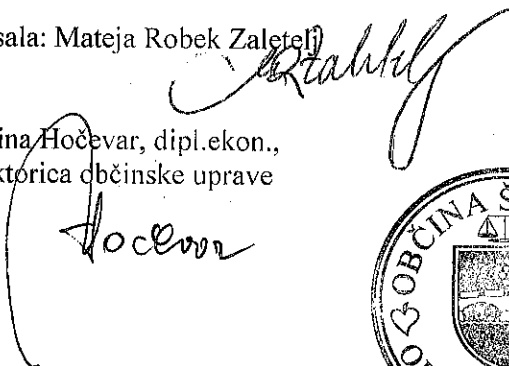 sala: Mateja Robek Zaletelj
ina Hočevar, dipl.ekon.,
ktorica občinske uprave
Hočevar
OBČINA Š